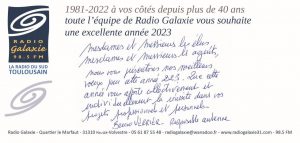 1981-2022 à vos côtés depuis plus de 40 ans
toute l'équipe de Radio Galaxie vous souhaite
une excellente année 2023
RADIO
Galaxie
98.5 FM
LA RADIO DU SUD
TOULOUSAIN
Mesdames et messieurs les élus
mesdames et messieurs les agents,
nous vous présentons nos meilleurs
voeux pour cette année 2023. Que cette
année vous apporte collectivement et
individuellement la réussite dans vos
projets professionnels et personnels.
Radio Galaxie - Quartier le Marfaut - 31310 - 05 61 87 55 48 - radiogalaxie@wanadoo.fr - www.radiogalaxie31.com - 98.5 FM